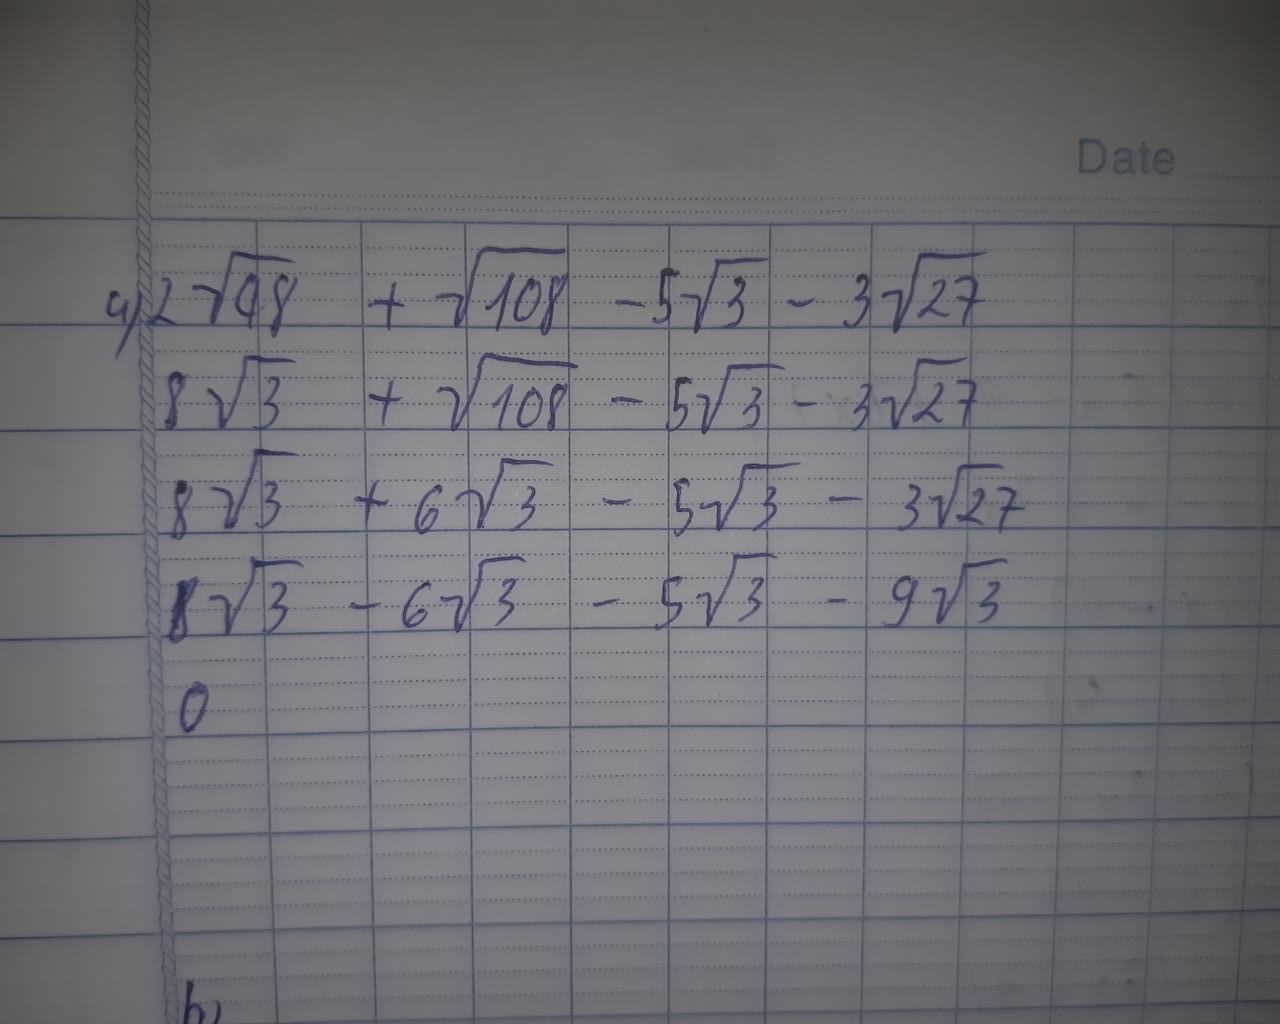 Date
a) 2√48 + √108 - 5√3 - 3√27
8√3 + √108 - 5√3 - 3√27
8√3 + 6√3 - 5√3 - 3√27
8√3 - 6√3 - 5√3 - 9√3
0
b)